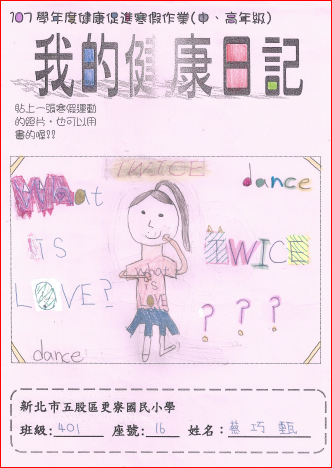 107學年度健康促進寒假作業(中、高年級)
我的健康日記
貼上一張寒假運動
的照片，也可以用
畫的喔!!
TWICE
What
dance
IS
TWICE
LOVE?
What
IS
LOVE
? ? ?
dance
新北市五股區更寮國民小學
班級:401 座號:16 姓名:蔡巧甄